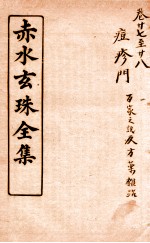 卷廿七至廿八
痘疹門
百家之說及方藥雜治
赤水玄珠全集